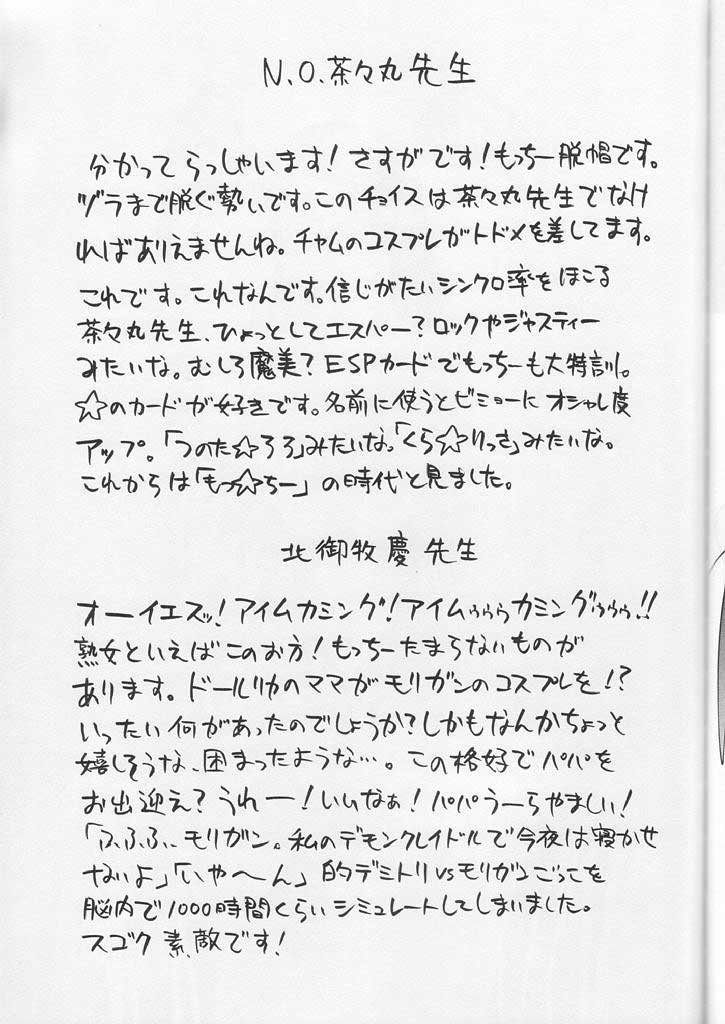 N.O.茶々丸先生
分かってらっしゃいます!さすがです!もっちー脱帽です。
ヅラまで脱ぐ勢いです。このチョイスは茶々丸先生でなけ
ればありえませんね。チャムのコスプレがトドメを差してます。
これです。これなんです。信じがたいシンクロ率をほこる
茶々丸先生、ひょっとしてエスパー?ロックやジャスティー
みたいな。むしろ魔美?ESPカードでもっちーも大特訓。
☆のカードが好きです。名前に使うとビミョーにオシャレ度
アップ。「つのた☆ろろ」みたいな。「くら☆りっさ」みたいな。
これからは「もっ☆ちー」の時代と見ました。
北御牧慶先生
オーイエズッ!アイムカミング!アイムゥゥゥカミングゥゥゥ!!
熟女といえばこのお方!もっちーたまらないものが
あります。ドールリカのママがモリガンのコスプレを!?
いったい何があったのでしょうか?しかもなんかちょっと
嬉しそうな、困まったような…。この格好でパパを
お出迎え?うれー!いいなぁ!パパうーらやましい!
「ふふふ…モリガン。私のデモンクレイドルで今夜は寝かせ
ないよ」「いや〜ん」的デミトリvsモリガンごっこを
脳内で1000時間くらいシミュレートしてしまいました。
スゴク素敵です!